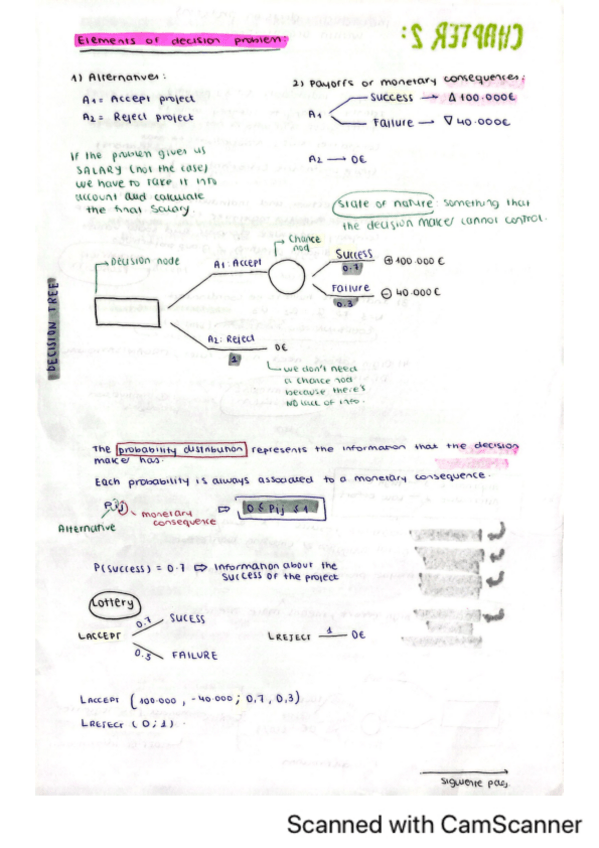 CHAPTER 2:
Elements of decision problem:
1) Alternatives:
A1 = Accept project
A2 = Reject project
If the problem gives us
SALARY (not the case)
we have to take it into
account and calculate
the final salary.
2) Payoffs or monetary consequences:
A1
Success → Δ 100.000€
Failure → ∇ 40.000€
A2 → 0€
State of nature: something that
the decision maker cannot control.
DECISION TREE
Decision node
Chance
nod
A1: Accept
Success
0.7
⊕ 100.000 €
Failure
0.3
⊖ 40.000€
A2: Reject
1
0€
we don't need
a chance nod
because there's
NO lack of info.
The probability distribution represents the information that the decision
maker has.
Each probability is always associated to a monetary consequence.
Pij
monetary
consequence
Alternative
⇨ 0 ≤ Pij ≤ 1
P(success) = 0.7 ⇨ Information about the
success of the project
Lottery
LACCEPT
0.7 SUCESS
0.3 FAILURE
LREJECT 1 0€
LACCEPT (100.000, -40.000; 0,7, 0,3)
LREJECT (0; 1).
siguiente pag.
Scanned with CamScanner